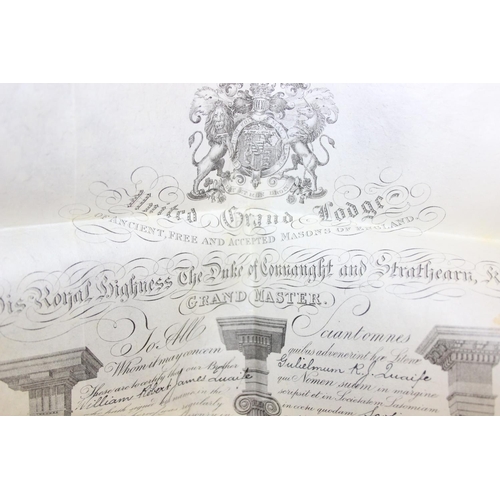 United Grand Lodge
OF ANCIENT, FREE AND ACCEPTED MASONS OF ENGLAND.
His Royal Highness The Duke of Connaught and Strathearn, K
GRAND MASTER.
To All
Whom it may concern
These are to certify that our Brother
William Robert James Quaife
regularly
Sciant omnes
quibus advenerint hæ Literæ
Gulielmum R. J. Quaife
qui Nomen suum in margine
scripsit et in Societatem Latomium
in eorte quodam